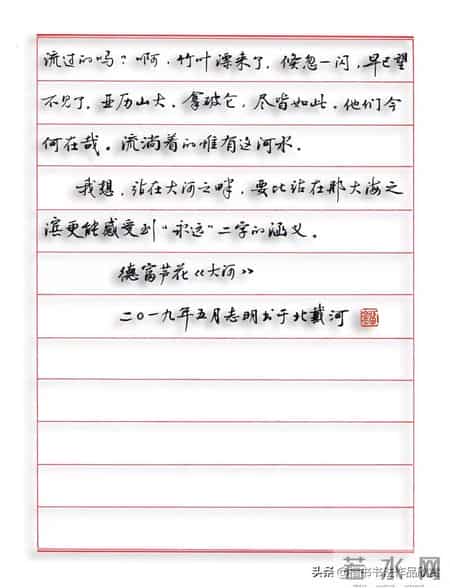 流过的吗？啊，竹叶漂来了，倏忽一闪，早已望
不见了。亚历山大，拿破仑，尽皆如此。他们今
何在哉。流淌着的唯有这河水。
我想，站在大河之畔，要比站在那大海之
滨更能感受到“永远”二字的涵义。
德富芦花《大河》
二〇一九年五月志明书于北戴河
头条